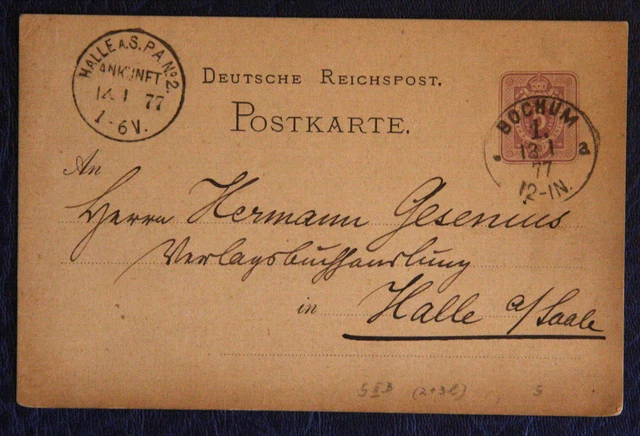 HALLE A.S. P.A. No 2.
ANKUNFT
14 1 77
1-6V.
DEUTSCHE REICHSPOST.
POSTKARTE.
BOCHUM
1.
13 1
a
77
12-1N.
An
Herrn Hermann Gesenius
Verlagsbuchhandlung
in Halle a/Saale
(2+3b) 5